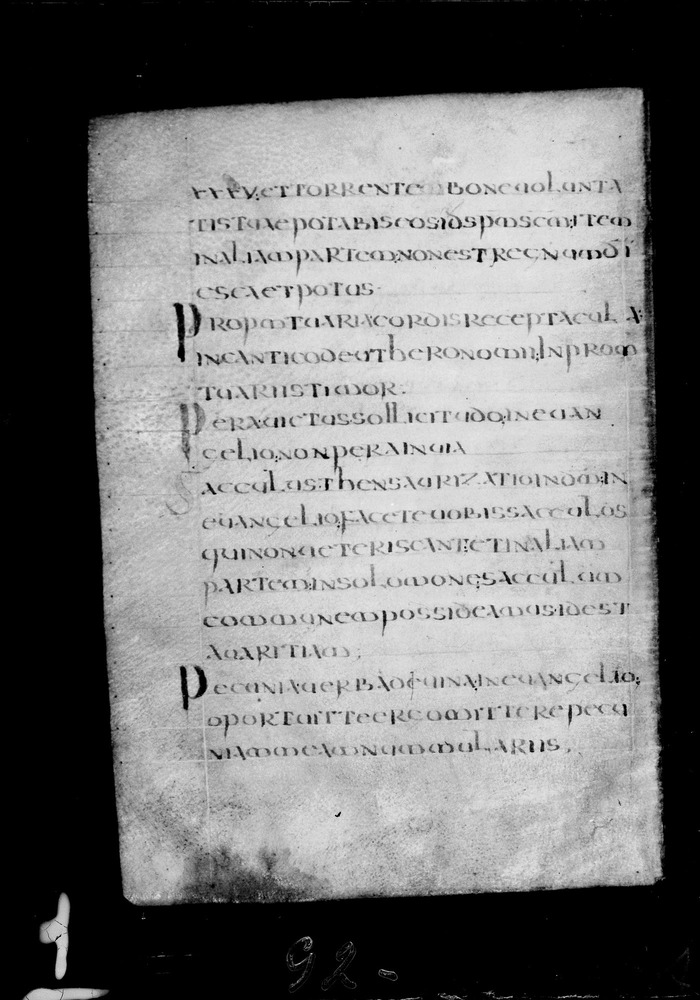 ETTORRENTE BONEUOLUNTA
TISTUAEPOTABISEOSIDSPMSCM;ITEM
INALIAMPARTEM;NONESTREGNUMDI
ESCAETPOTUS·
PROPMTUARIACORDISRECEPTACULA·
INCANTICODEUTHERONOMII;INPROM
TUARIISTIMOR.
PERAUICTUSSOLLICITUDO;INEUAN
GELIO;NONPERAINUIA
SACCULUSTHENSAURIZATIOINDM;IN
EUANGELIO;FACETEUOBISSACCULOS
QUINONUETERISCANT;ETINALIAM
PARTEM;INSOLOMONE;SACCULUM
COMMUNEMPOSSIDEAMUS;IDEST
AUARITIAM;
PECUNIAUERBADIUINA;INEUANGELIO;
OPORTUITTEERCOMITTEREPECU
NIAMMEAMNUMMULARIIS;
92-